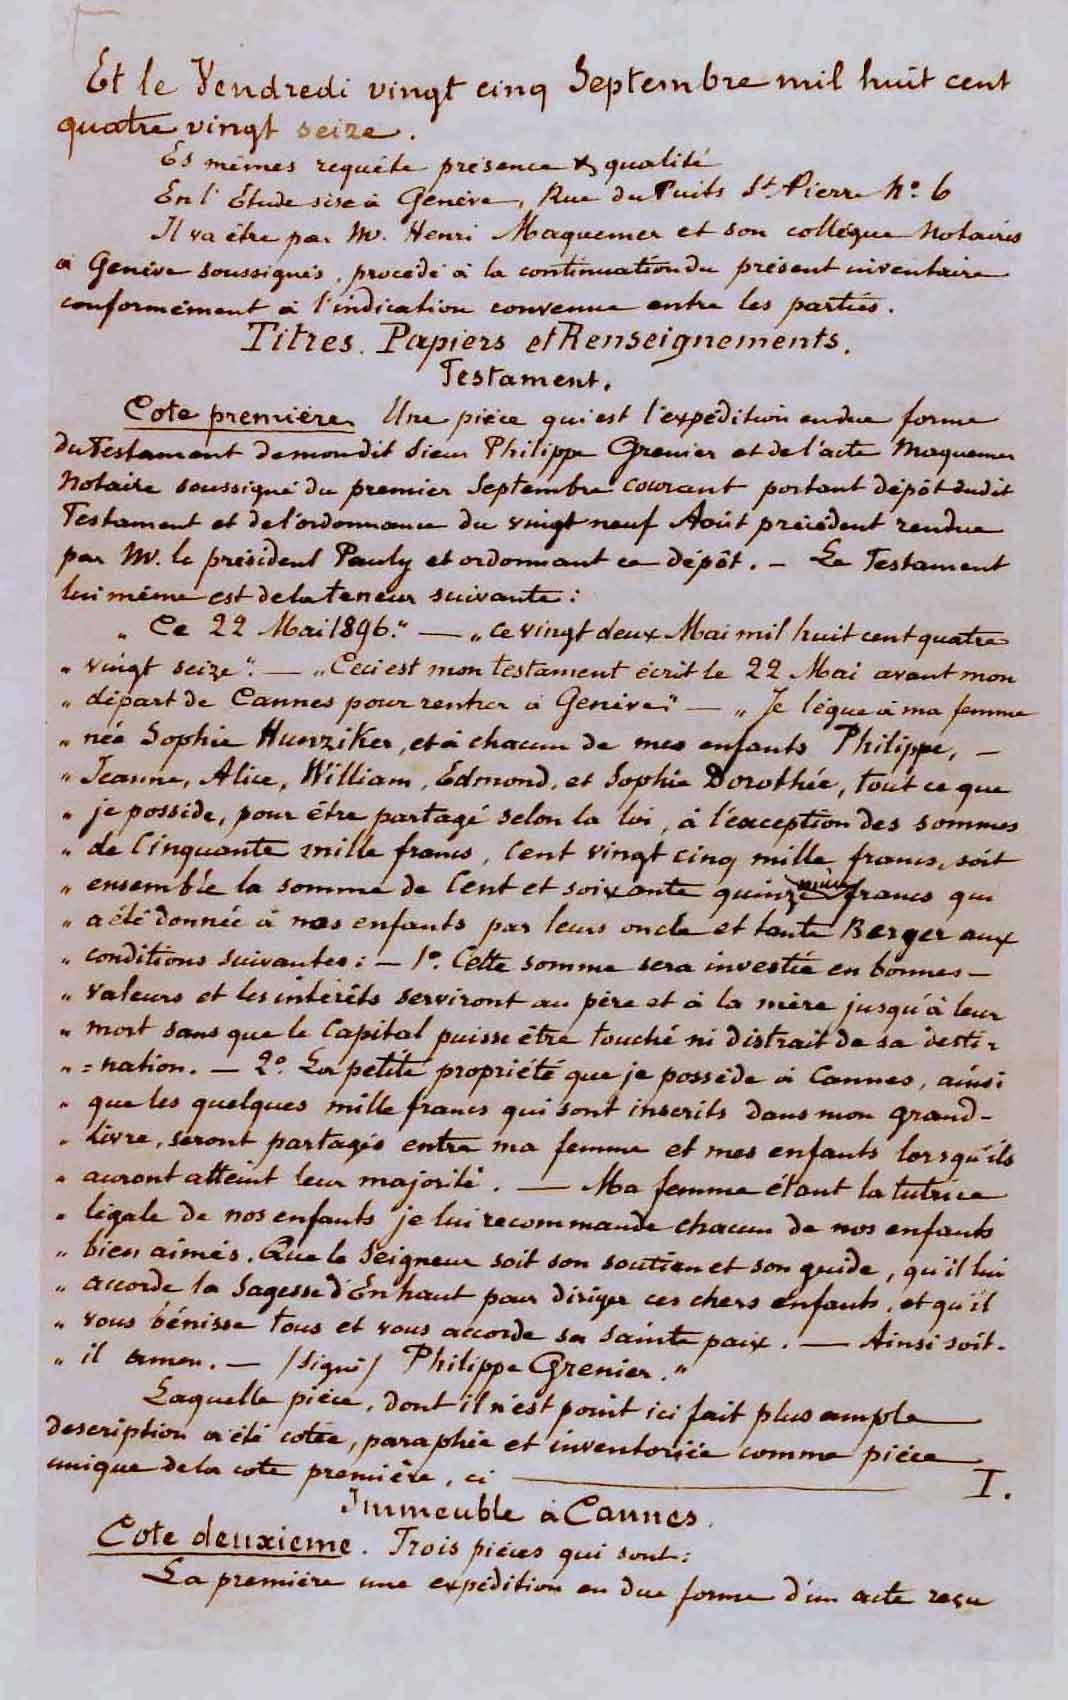 Et le Vendredi vingt cinq Septembre mil huit cent
quatre vingt seize.
Es mêmes requête présence & qualité
En l'Etude sise à Genève, Rue du Puits St. Pierre No. 6
Il va être par Mr. Henri Maquemer et son collègue Notaires
à Genève soussignés, procédé à la continuation du présent inventaire
conformément à l'indication convenue entre les parties.
Titres. Papiers et Renseignements.
Testament.
Cote première. Une pièce qui est l'expédition en due forme
du Testament de mondit Sieur Philippe Grenier et de l'acte Maquemer
Notaire soussigné du premier Septembre courant portant dépôt dudit
Testament et de l'ordonnance du vingt neuf Août précédent rendue
par Mr. le président Pauly et ordonnant ce dépôt. — Le Testament
lui même est de la teneur suivante :
„ Ce 22 Mai 1896." — „ Ce vingt deux Mai mil huit cent quatre
„ vingt seize". — „ Ceci est mon testament écrit le 22 Mai avant mon
„ départ de Cannes pour rentrer à Genève" — „ Je lègue à ma femme
„ née Sophie Hunziker, et à chacun de mes enfants Philippe, —
„ Jeanne, Alice, William, Edmond, et Sophie Dorothée, tout ce que
„ je possède, pour être partagé selon la loi, à l'exception des sommes
„ de Cinquante mille francs, Cent vingt cinq mille francs, soit
„ ensemble la somme de Cent et soixante quinze mille francs qui
„ a été donnée à nos enfants par leurs oncle et tante Berger aux
„ conditions suivantes : — 1o. Cette somme sera investie en bonnes —
„ valeurs et les intérêts serviront au père et à la mère jusqu'à leur
„ mort sans que le Capital puisse être touché ni distrait de sa desti-
„ =nation. — 2o. La petite propriété que je possède à Cannes, ainsi
„ que les quelques mille francs qui sont inscrits dans mon grand-
„ livre, seront partagés entre ma femme et mes enfants lorsqu'ils
„ auront atteint leur majorité. — Ma femme étant la tutrice
„ légale de nos enfants je lui recommande chacun de nos enfants
„ bien aimés. Que le Seigneur soit son soutien et son guide, qu'il lui
„ accorde la Sagesse d'En haut pour diriger ces chers enfants, et qu'il
„ vous bénisse tous et vous accorde sa Sainte paix. — Ainsi soit-
„ il amen. — /signé/ Philippe Grenier."
Laquelle pièce, dont il n'est point ici fait plus ample
description a été cotée, paraphée et inventoriée comme pièce
unique de la cote première, ci — I.
Immeuble à Cannes.
Cote deuxième. Trois pièces qui sont :
La première une expédition en due forme d'un acte reçu